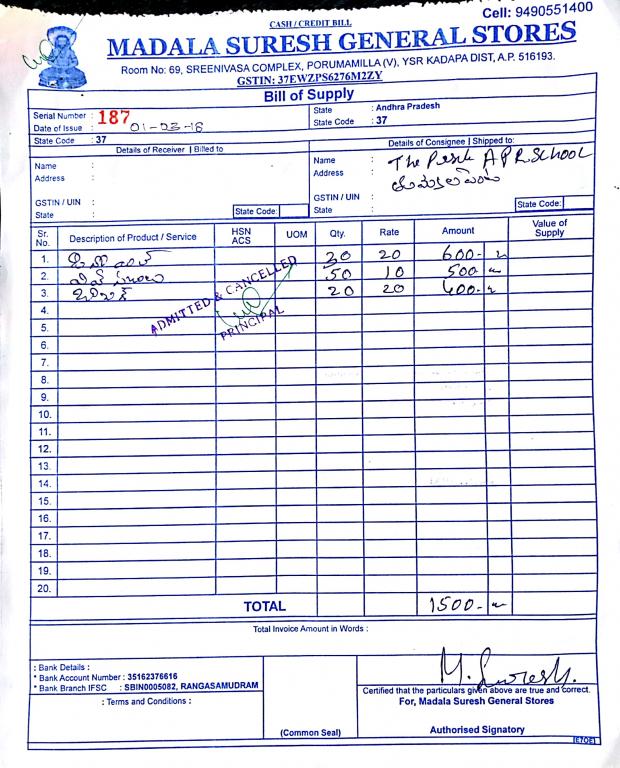 Cell: 9490551400
CASH / CREDIT BILL
MADALA SURESH GENERAL STORES
Room No: 69, SREENIVASA COMPLEX, PORUMAMILLA (V), YSR KADAPA DIST, A.P. 516193.
GSTIN: 37EWZPS6276M2ZY
Bill of Supply
Serial Number : 187
Date of Issue : 01-03-18
State Code : 37
State : Andhra Pradesh
State Code : 37
Details of Receiver | Billed to
Name :
Address :
GSTIN / UIN :
State : State Code:
Details of Consignee | Shipped to:
Name : The A P R SCHOOL
Address :
GSTIN / UIN :
State : State Code:
Sr. No. Description of Product / Service HSN ACS UOM Qty. Rate Amount Value of Supply
1. 30 20 600-
2. 50 10 500-
3. 20 20 400-
ADMITTED & CANCELLED
PRINCIPAL
4.
5.
6.
7.
8.
9.
10.
11.
12.
13.
14.
15.
16.
17.
18.
19.
20.
TOTAL 1500-
Total Invoice Amount in Words :
: Bank Details :
* Bank Account Number : 35162376616
* Bank Branch IFSC : SBIN0005082, RANGASAMUDRAM
: Terms and Conditions :
(Common Seal)
M. Suresh.
Certified that the particulars given above are true and correct.
For, Madala Suresh General Stores
Authorised Signatory
[E7OE]